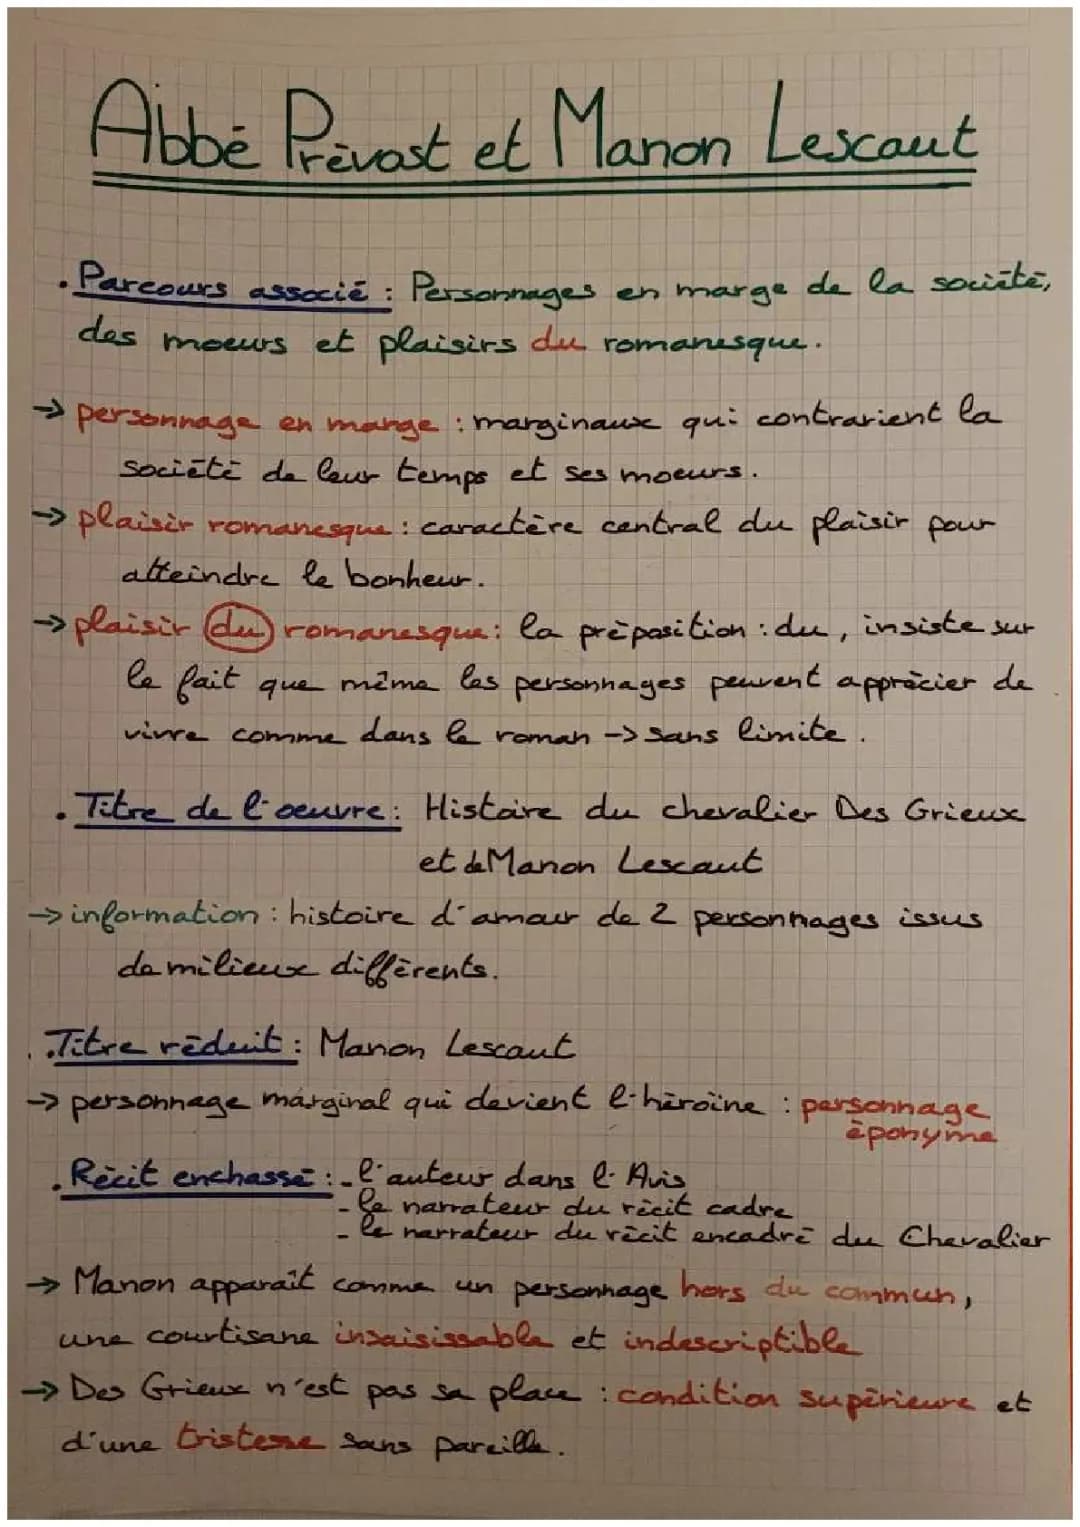 Abbé Prévost et Manon Lescaut
. Parcours associé : Personnages en marge de la société,
des moeurs et plaisirs du romanesque.
→ personnage en marge : marginaux qui contrarient la
société de leur temps et ses moeurs.
→ plaisir romanesque : caractère central du plaisir pour
atteindre le bonheur.
→ plaisir du romanesque : la préposition : du, insiste sur
le fait que même les personnages peuvent apprécier de
vivre comme dans le roman -> sans limite.
. Titre de l'oeuvre : Histoire du chevalier Des Grieux
et de Manon Lescaut
→ information : histoire d'amour de 2 personnages issus
de milieux différents.
. Titre réduit : Manon Lescaut
→ personnage marginal qui devient l'héroïne : personnage
éponyme
. Récit enchassé : - l'auteur dans l'Avis
- le narrateur du récit cadre
- le narrateur du récit encadré du Chevalier
→ Manon apparaît comme un personnage hors du commun,
une courtisane insaisissable et indescriptible
→ Des Grieux n'est pas sa place : condition supérieure et
d'une tristesse sans pareille.